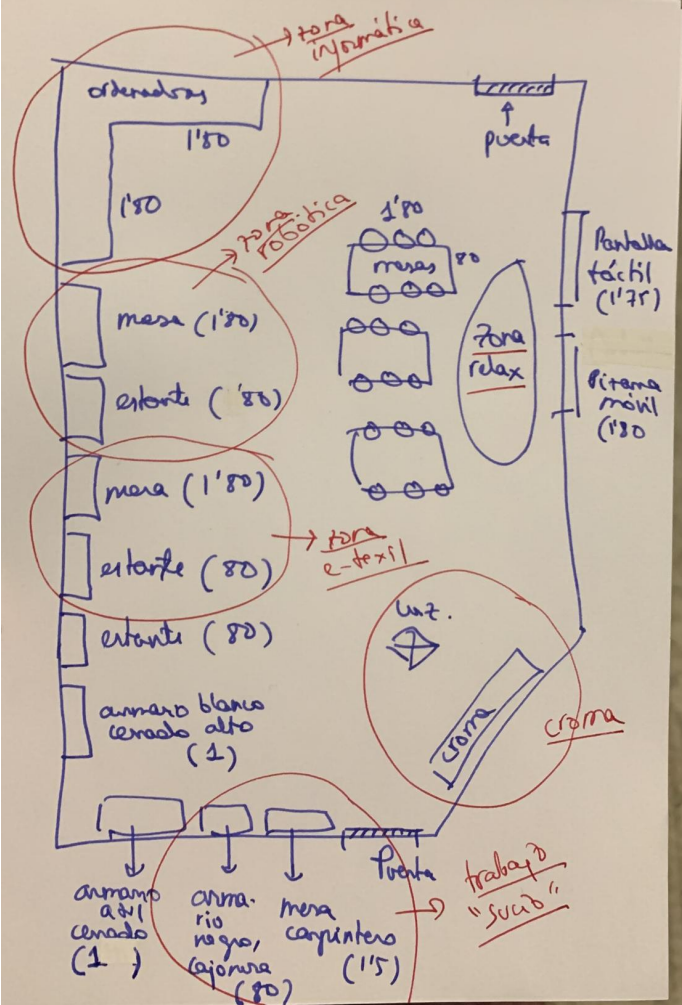 zona
informática
ordenadores
1'80
1'80
puerta
zona
robótica
1'80
mesas
80
Pantalla
táctil
(1'75)
mesa (1'80)
zona
relax
Pizarra
móvil
(1'80
estante ('80)
mesa (1'80)
zona
e-textil
estante (80)
estante (80)
luz.
armario blanco
cerrado alto
(1)
croma
croma
Puerta
trabajo
"sucio"
armario
azul
cerrado
(1)
arma-
rio
negro,
cajonera
(80)
mesa
carpintero
(1'5)